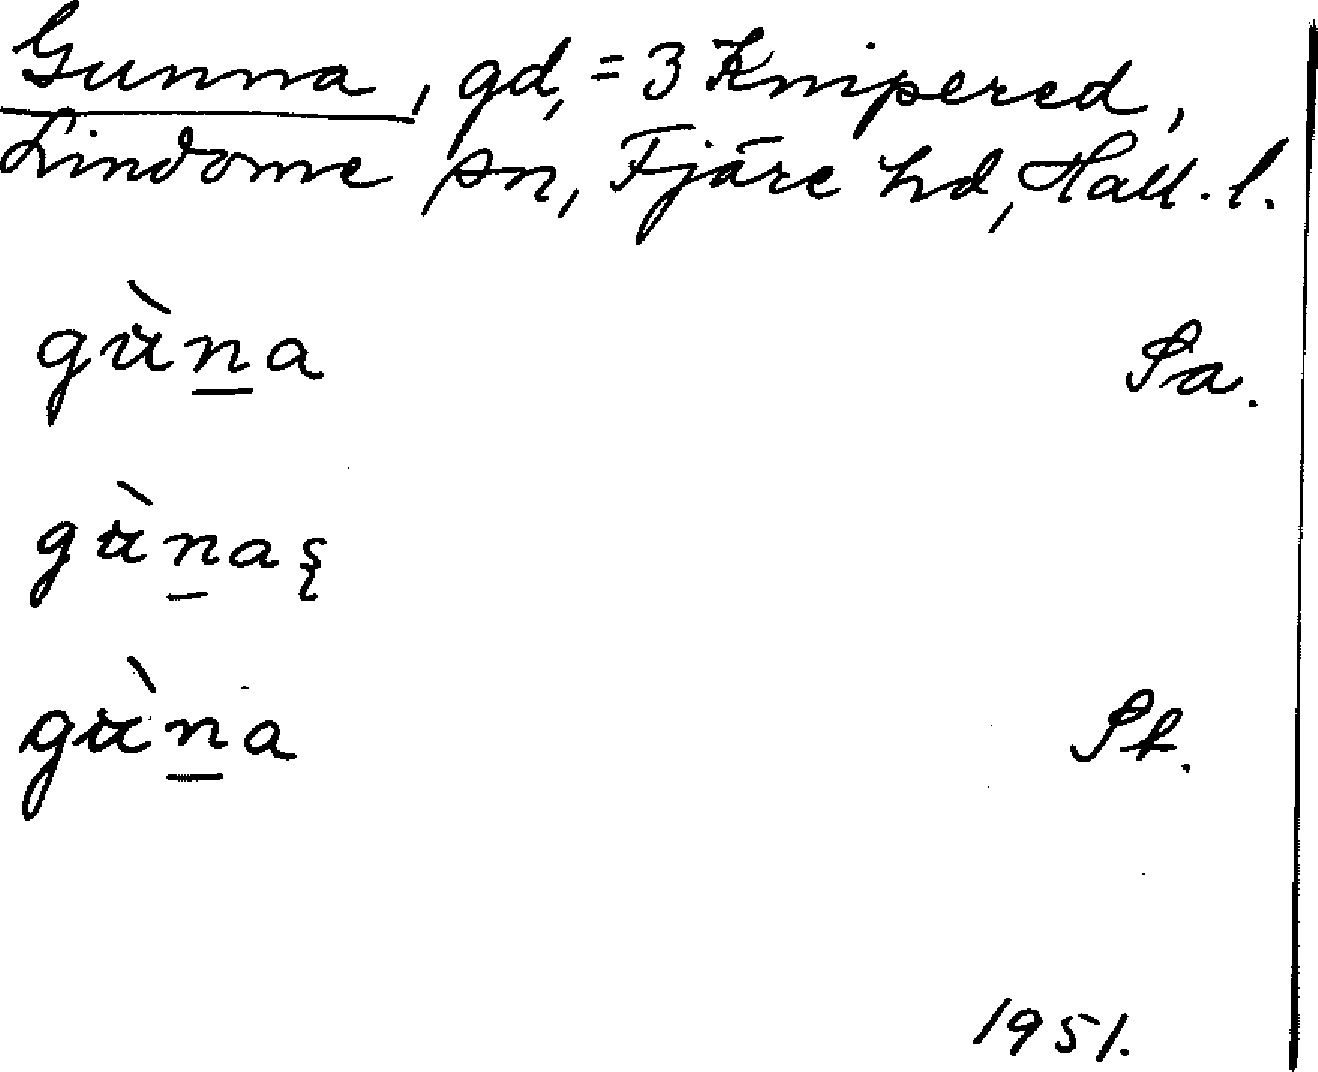 Gunna, gd, = 3 Knipered,
Lindome sn, Fjäre hd, Hall. l.
gù̈n̲a Sa.
gù̈n̲aş
gù̈n̲a St.
1951.